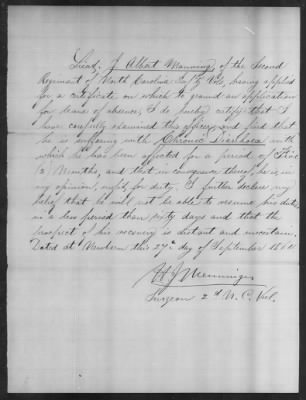 Lieut. J Albert Manning, of the Second
Regiment of North Carolina Inf'ty Vols, having applied
for a certificate, on which to ground an application
for leave of absence, I do hereby certify that I
have carefully examined this officer, and find that
he is suffering with Chronic Diarrhoea with
which he has been affected for a period of Five
(5) Months, and that in consequence thereof, he is in
my opinion, unfit for duty. I further declare my
belief that he will not be able to resume his duties
in a less period than sixty days and that the
prospect of his recovery is distant and uncertain.
Dated at Newbern this 27th day of September
Menninger
Surgeon 2d N. C. Vol.